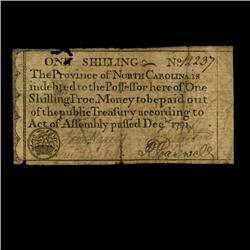 ONE SHILLING No 4237
The Province of NORTH CAROLINA is
indebted to the Possessor here of One
Shilling Proc. Money to be paid out
of the public Treasury according to
Act of Assembly passed Decr. 1771
R Caswell